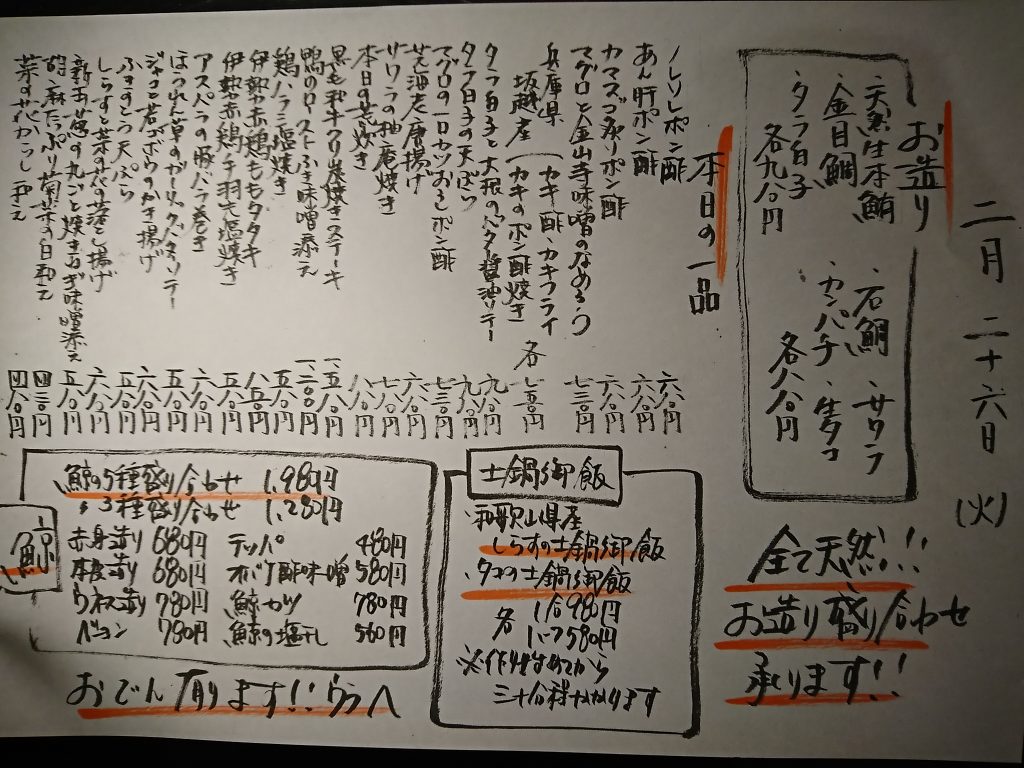 二月二十六日(火)
お造り
・天然生本鮪
・金目鯛
・タラ白子
各九八〇円
・石鯛・サワラ
・カンパチ・生タコ
各八八〇円
全て天然!!
お造り盛り合わせ
承ります!!
本日の一品
ノレソレポン酢 六八〇円
あん肝ポン酢 六八〇円
カマスゴ炙りポン酢 六八〇円
マグロと金山寺味噌のなめろう 七三〇円
兵庫県
坂越産(カキ酢、カキフライ
(カキのポン酢焼き 各七五〇円
タラ白子と大根のバター醤油ソテー 九八〇円
タラ白子の天ぷら 九八〇円
マグロの一口カツおろしポン酢 七三〇円
唐揚げ 六八〇円
サワラの柚庵焼き 七八〇円
本日の荒炊き 八八〇円
黒毛和牛クリ炭焼きステーキ 一、五八〇円
鴨のロースト ふき味噌添え 一、二〇〇円
鶏ハラミ塩焼き 五八〇円
伊勢赤鶏ももタタキ 八五〇円
伊勢赤鶏手羽先塩焼き 五八〇円
アスパラの豚バラ巻き 六八〇円
ほうれん草のガーリックバターソテー 五八〇円
ジャコと若ゴボウのかき揚げ 六八〇円
ふきのとう天ぷら 五八〇円
しらすと菜の花の落とし揚げ 六八〇円
新玉葱の丸ごと焼き ねぎ味噌添え 五八〇円
胡麻たっぷり菊菜の白和え 四三〇円
菜の花からし和え 四八〇円
土鍋御飯
・和歌山県産
しらすの土鍋御飯
・タコの土鍋御飯
各 1合980円
1.5合1,580円
※作り始めてから
三十分程かかります
鯨
鯨の5種盛り合わせ 1,980円
〃3種盛り合わせ 1,280円
赤身造り 680円
本皮造り 680円
ウネス造り 780円
ベーコン 780円
テッパ 480円
オバケ酢味噌 580円
鯨カツ 780円
鯨の塩干し 560円
おでん有ります!!ウラへ